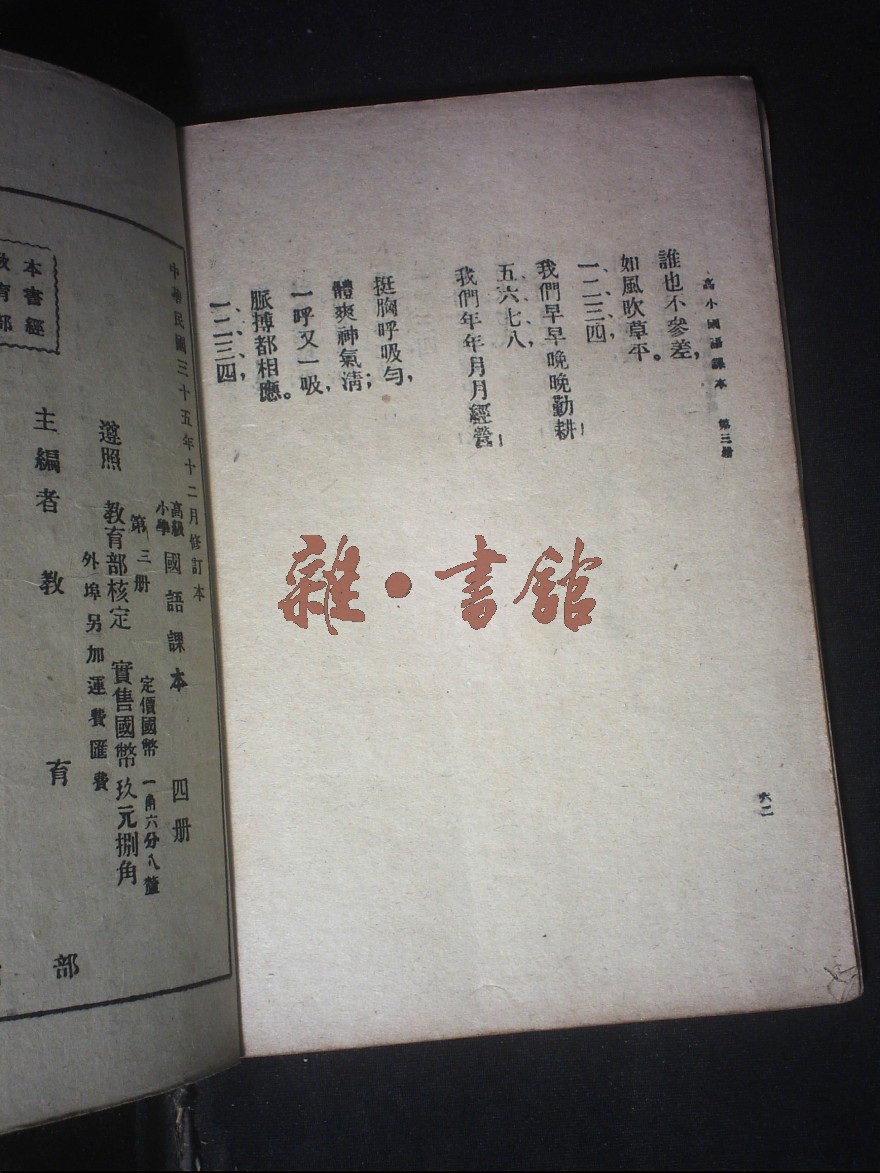 高小國語課本 第三册
誰也不參差,
如風吹草平。
一、二、三、四,
我們早早晚晚勤耕!
五、六、七、八、
我們年年月月經營!
挺胸呼吸勻,
體爽神氣清;
一呼又一吸,
脈搏都相應。
一、二、三、四,
六二
雜·書館
中華民國三十五年十二月修訂本
高級小學 國語課本 四册
第三册 定價國幣一角六分八釐
遵照教育部核定 實售國幣玖元捌角
外埠另加運費匯費
主編者 教育部
本書經
教育部